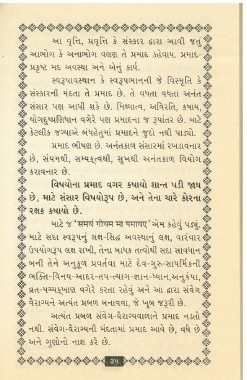 આ વૃત્તિ, પ્રવૃત્તિ કે સંસ્કાર દ્વારા આવી જતું
આભોગ કે અનાભોગ વલણ તે પ્રમાદ કહેવાય. પ્રમાદ-
પ્રકૃષ્ટ મદ અવસ્થા અને એનું કાર્ય.
સ્વરૂપાવસ્થાન કે સ્વરૂપભાનની જે વિસ્મૃતિ કે
સંસ્કારની મંદતા તે પ્રમાદ છે. તે વધતા વધતા અનંત
સંસાર પણ આપી શકે છે. મિથ્યાત્વ, અવિરતિ, કષાય,
યોગદુષ્પ્રણિધાન વગેરે પણ પ્રમાદના જ રૂપાંતર છે. માટે
કેટલીક જગ્યાએ બંધહેતુમાં પ્રમાદને જુદો નથી પાડ્યો.
પ્રમાદ ભીષણ છે. અનંતકાળ સંસારમાં રખડાવનાર
છે, સંયમથી, સમ્યક્ત્વથી, સુખથી અનંતકાળ વિયોગ
કરાવનાર છે.
વિષયોના પ્રમાદ વગર કષાયો શાન્ત પડી જાય
છે, માટે સંસાર વિષયોરૂપ છે, અને તેના ચારે કોરના
રક્ષક કષાયો છે.
માટે જ 'समयं गोयम मा पमायए' એમ કહેવું પડ્યું.
માટે સદા સ્વરૂપનું લક્ષ-સિદ્ધ અવસ્થાનું લક્ષ, વારંવાર
ઉપયોગરૂપ લક્ષ રાખી, તેના બાધક તત્વોથી સદા સાવધાન
બની તેને અનુકૂળ પ્રવર્તવા માટે દેવ-ગુરુ-સાધર્મિકની
ભક્તિ-વિનય-આદર-તપ-ત્યાગ-જ્ઞાન-ધ્યાન,અનુકંપા,
વ્રત-પચ્ચક્ખાણ વગેરે કરતા રહેવું અને આ દ્વારા સંવેગ
વૈરાગ્યને અત્યંત પ્રબળ બનાવવા, જે ખૂબ જરૂરી છે.
અત્યંત પ્રબળ સંવેગ-વૈરાગ્યવાળાને પ્રમાદ નડતો
નથી. સંવેગ-વૈરાગ્યની મંદતામાં પ્રમાદ આવે છે, વધે છે
અને ગુણોનો નાશ કરે છે.
૩૫